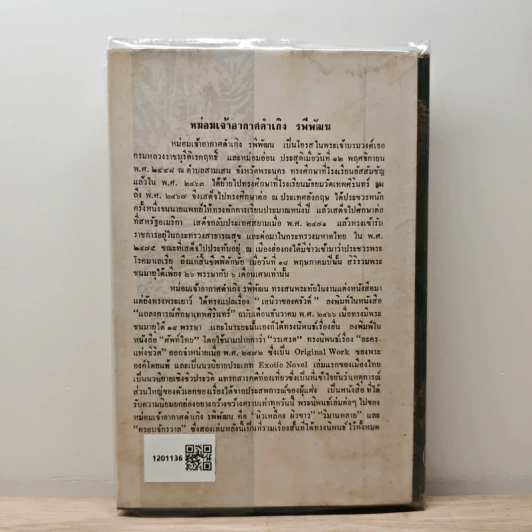 หม่อมเจ้าอากาศดำเกิง รพีพัฒน
หม่อมเจ้าอากาศดำเกิง รพีพัฒน เป็นโอรสในพระเจ้าบรมวงศ์เธอ
กรมหลวงราชบุรีดิเรกฤทธิ์ และหม่อมอ่อน ประสูติเมื่อวันที่ ๑๒ พฤศจิกายน
พ.ศ. ๒๔๔๘ ณ ตำบลสามเสน จังหวัดพระนคร ทรงศึกษาที่โรงเรียนอัสสัมชัญ
แล้วใน พ.ศ. ๒๔๖๓ ได้ย้ายไปทรงศึกษาที่โรงเรียนมัธยมวัดเทพศิรินทร์
ถึง พ.ศ. ๒๔๖๗ จึงเสด็จไปทรงศึกษาต่อ ณ ประเทศอังกฤษ ได้ประชวรหนัก
ครั้งหนึ่งจนนายแพทย์ให้ทรงพักการเรียนประมาณหนึ่งปี แล้วเสด็จไปศึกษาต่อ
ที่สหรัฐอเมริกา เสด็จกลับประเทศสยามเมื่อ พ.ศ. ๒๔๗๑ แล้วทรงเข้ารับ
ราชการอยู่ในกระทรวงสาธารณสุข และต่อมาในกระทรวงมหาดไทย ใน พ.ศ.
๒๔๗๕ ขณะที่เสด็จไปประทับอยู่ ณ เมืองฮ่องกงได้มีข่าวเข้ามาว่าประชวรพระ
โรคมาเลเรีย ถึงแก่สิ้นชีพิตักษัย เมื่อวันที่ ๑๘ พฤษภาคมปีนั้น สิริรวมพระ
ชนมายุได้เพียง ๒๖ พรรษากับ ๖ เดือนเศษเท่านั้น
หม่อมเจ้าอากาศดำเกิง รพีพัฒน ทรงสนพระทัยในงานแต่งหนังสือมา
แต่ยังทรงพระเยาว์ ได้ทรงแปลเรื่อง ลงพิมพ์ในหนังสือ
"แถลงการณ์ศึกษาเทพศิรินทร์" ฉบับเดือนธันวาคม พ.ศ. ๒๔๖๖ เมื่อทรงมีพระ
ชนมายุได้ ๑๘ พรรษา และในระยะนั้นเองก็ได้ทรงนิพนธ์เรื่องอื่น ลงพิมพ์ใน
หนังสือ "ศัพท์ไทย" โดยใช้นามปากกาว่า "วรเศวต" ทรงนิพนธ์เรื่อง "ละคร
แห่งชีวิต" ออกจำหน่ายเมื่อ พ.ศ. ๒๔๗๒ ซึ่งเป็น Original Work ของพระ
องค์โดยแท้ และเป็นนวนิยายประเภท Exotic Novel เล่มแรกของเมืองไทย
เป็นนวนิยายเชิงชีวประวัติ แทรกสารคดีท่องเที่ยวซึ่งเป็นที่เข้าใจกันว่าเหตุการณ์
ส่วนใหญ่ของตัวเอกของเรื่องได้จากประสบการณ์ของผู้แต่ง เป็นหนังสือที่ได้
รับความนิยมยกย่องอย่างกว้างขวางตราบเท่าทุกวันนี้ พระนิพนธ์เล่มต่อๆ ไปของ
หม่อมเจ้าอากาศดำเกิง รพีพัฒน คือ "ผิวเหลือง ผิวขาว" "วิมานทลาย" และ
"ครอบจักรวาล" ซึ่งสองเล่มหลังนี้เป็นที่รวมเรื่องสั้นที่ได้ทรงนิพนธ์ไว้ทั้งหมด
1201136